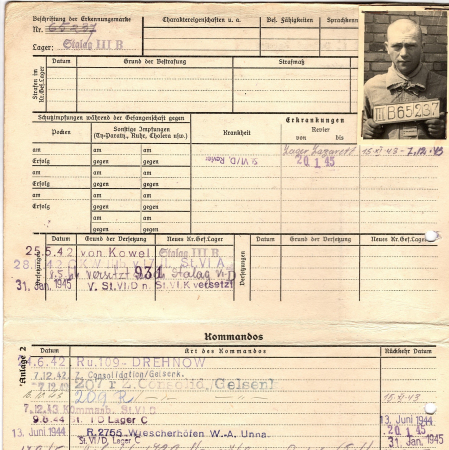 Beschriftung der Erkennungsmarke
Charaktereigenschaften u. a.
Bes. Fähigkeiten
Sprachkenn
Nr. 65237
Lager: Stalag III B
III B 65237
Strafen im Kr.Gef.Lager
Datum
Grund der Bestrafung
Strafmaß
Schutzimpfungen während der Gefangenschaft gegen
Erkrankungen
Pocken
Sonstige Impfungen
(Ty-Paraty., Ruhr, Cholera usw.)
Krankheit
Revier
von
bis
am
am
Lager Lazarett
15.XI.43-7.12.43
Erfolg
gegen
gegen
St VI/D, Revier
20 1. 45
am
am
am
Erfolg
gegen
gegen
am
am
am
Erfolg
gegen
gegen
am
am
am
Erfolg
gegen
gegen
am
am
gegen
gegen
Versetzungen
Datum
Grund der Versetzung
Neues Kr.Gef.Lager
Versetzungen
Datum
Grund der Versetzung
Neues Kr.Gef.Lager
25.5.42 von Kowel Stalag III B
St. VI A
versetzt 931 Stalag VI D
31. Jan. 1945 V. St. VI/D n. St. VI K versetzt
Anlage 2
Kommandos
Datum
Art des Kommandos
Rückkehr Datum
4.6.42 Ru.109 - DREHNOW
7.12.42 Z. Consolidation/Gelsenk.
7.12.42 207 r Z. Consolid./Gelsenk
209 R
7.12.43 Kommandb. St. VI D
9.6.44 St. VI D Lager C
13. Juni 1944
13. Juni 1944 R. 2755 Wiescherhöfen W.-A. Unna.
20 1 45
St. VI/D, Lager C
31. Jan. 1945